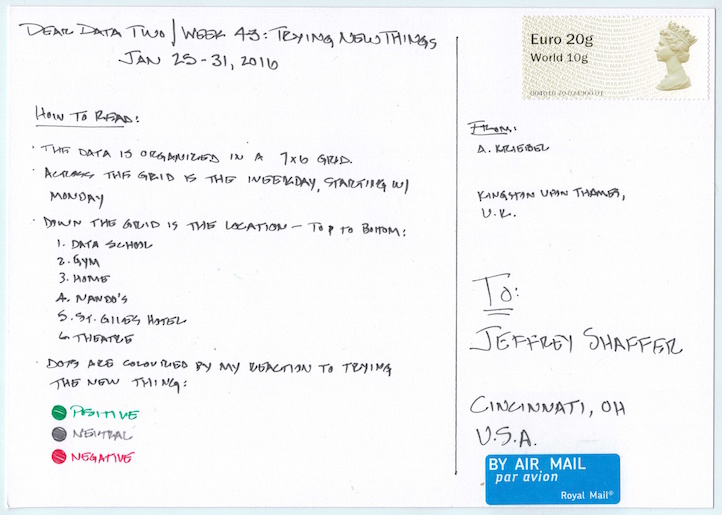 DEAR DATA TWO | WEEK 43: TRYING NEW THINGS
JAN 25-31, 2016
HOW TO READ:
· THE DATA IS ORGANIZED IN A 7X6 GRID.
· ACROSS THE GRID IS THE WEEKDAY, STARTING W/
MONDAY
· DOWN THE GRID IS THE LOCATION - TOP TO BOTTOM:
1. DATA SCHOOL
2. GYM
3. HOME
4. NANDO'S
5. ST. GILES HOTEL
6. THEATRE
· DOTS ARE COLOURED BY MY REACTION TO TRYING
THE NEW THING:
POSITIVE
NEUTRAL
NEGATIVE
Euro 20g
World 10g
FROM:
A. KRIEBEL
KINGSTON UPON THAMES,
U.K.
TO:
JEFFREY SHAFFER
CINCINNATI, OH
U.S.A.
BY AIR MAIL
par avion
Royal Mail®